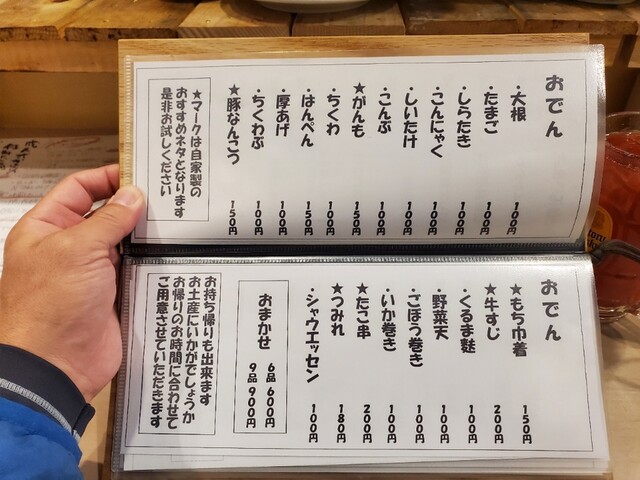 おでん
・大根 100円
・たまご 100円
・しらたき 100円
・こんにゃく 100円
・しいたけ 100円
・こんぶ 100円
★がんも 150円
・ちくわ 100円
・はんぺん 150円
・厚あげ 100円
・ちくわぶ 100円
★豚なんこう 150円
★マークは自家製の
おすすめネタとなります
是非お試しください
おでん
★もち巾着 150円
★牛すじ 200円
・くるま麩 100円
・野菜天 100円
・ごぼう巻き 100円
・いか巻き 100円
★たこ串 200円
★つみれ 180円
・シャウエッセン 100円
おまかせ
6品 600円
9品 900円
お持ち帰りも出来ます
お土産にいかがでしょうか
お帰りのお時間に合わせて
ご用意させていただきます